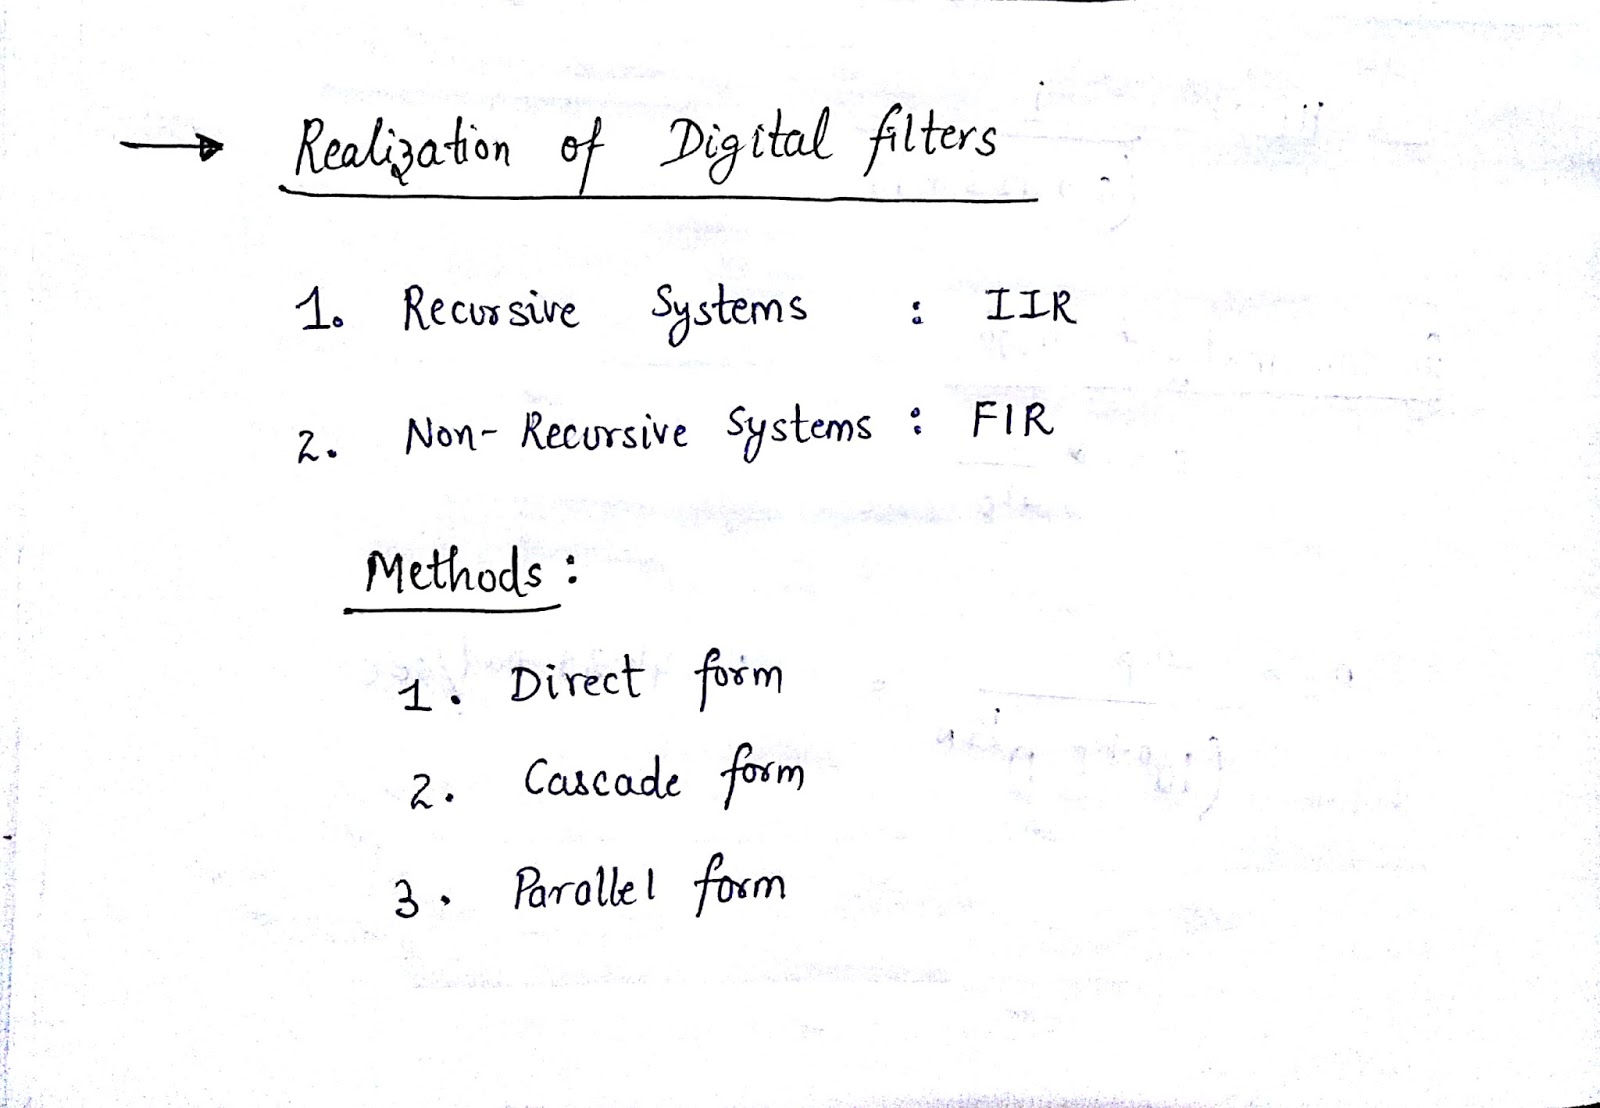 → Realization of Digital filters
1. Recursive Systems : IIR
2. Non-Recursive Systems : FIR
Methods :
1. Direct form
2. Cascade form
3. Parallel form